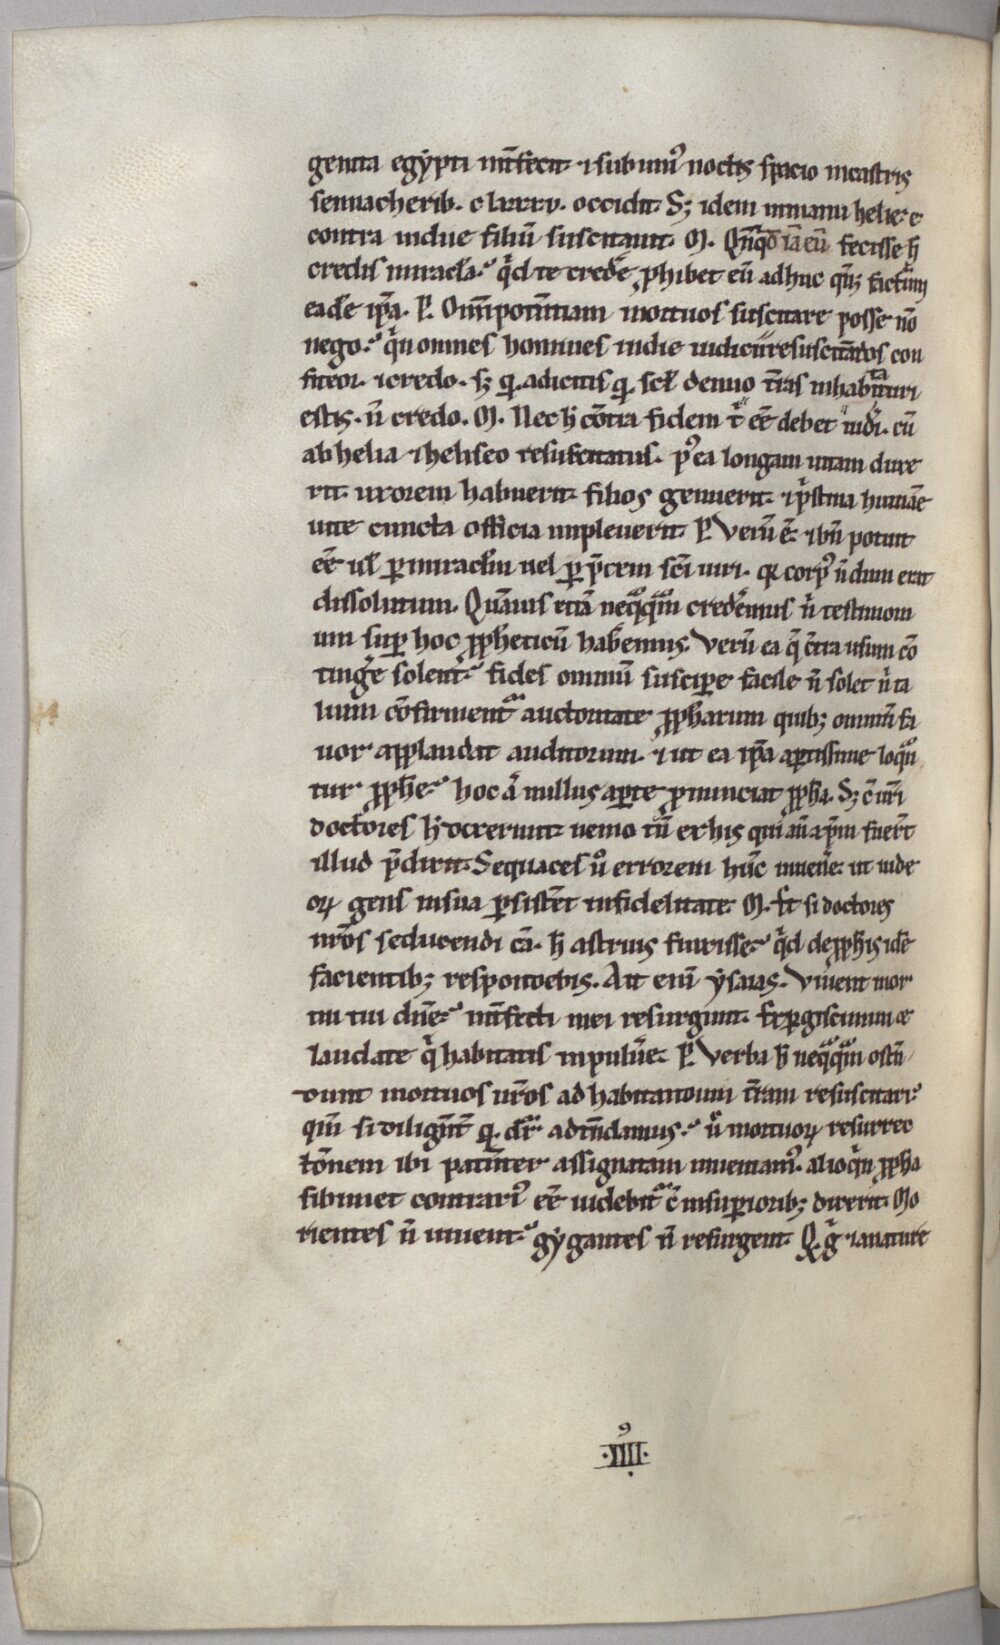 genita egẏpti int̄fecit· ⁊ sub uniꝰ noctis spacio in castris
sennacherib· clxxxv· occidit· Sꝫ idem in manu helie· e
contra uidue filiū suscitauit· M· Qn̄ qͥd iā eū fecisse h̄
credis miracl̄a· qͥd te credē ꝓhibet eū adhuc
eadē ip̄a· P· Omīpotentiam mortuos suscitare posse nō
nego· omnes homines in die iudicii resuscitādos con
fiteor· ⁊ credo· sꝫ ꝙ adicitis ꝙ scl̄ denuo t̄ras inhabitaturi
estis· n̄ credo· M· Nec h̄ cōtra fidem tͥ eē debet cū
ab helia ⁊ heliseo resuscitatus· pꝰea longam uitam duxe
rit· uxorem habuerit· filios genuerit· ⁊ pͥstina humāe
uite cuncta officia impleuerit· P· Verū ē· ⁊ bn̄ potuit
eē ul̄ ꝑ miracl̄m uel ꝑ p̄cem sc̄i uiri· qꝛ corpꝰ n̄dum erat
dissolutum· Quāuis etiā neqͣqͣm credem̄us nͥ testimoni
um suꝑ hoc ꝓph̄eticū habemus· Verū ea q̄ c̄tra usum cō
tinḡe solent· fides omniū suscipe facile n̄ solet nͥ ta
lium cōfirment᷑ auctoritate ꝓph̄arum quibꝫ omniū fa
uor applaudat auditorum· ⁊ ut ea ip̄a aꝑtissime loqͣn
tur ꝓph̄e· hoc aͫ nullus aꝑte ꝓnunciat ꝓph̄a· Sꝫ ⁊ ur̄i
doctores h̄ docrerunt· nemo tn̄ ex his qui an̄ xp̄m fuer̄t
illud p̄dixit· Sequaces uͦ errorem hūc inuene· ut iude
oꝝ gens in sua ꝑsist̄et infidelitate· M· si doctores
nr̄os seducendi cā· h̄ astruis finxisse· qͥd de ꝓph̄is idē
facientibꝫ respondebis· Ait enī ẏsaias· Viuent mor
tui tui dn̄e· int̄fecti mei resurgunt· Exꝑgiscimini ⁊
laudate qͥ habitatis in puluēe· P· Verba h̄ neqͣqͣm ostn̄
dunt mortuos ur̄os ad habitandum t̄ram resuscitari·
qm̄ si diligent̄ ꝙ dr̄ attendamus· nͦ mortuoꝝ resurrec
tōnem ibi patent̄er assignatam inueniamꝰ· alioqͥn ꝓph̄a
sibimet contrariꝰ eē uidebit᷑ c̄ in suꝑioribꝫ dixerit· Mo
rientes n̄ uiuent· gẏgantes n̄ resurgent· Q· gͦ ⁊ a nature
·IIIIꝰ·